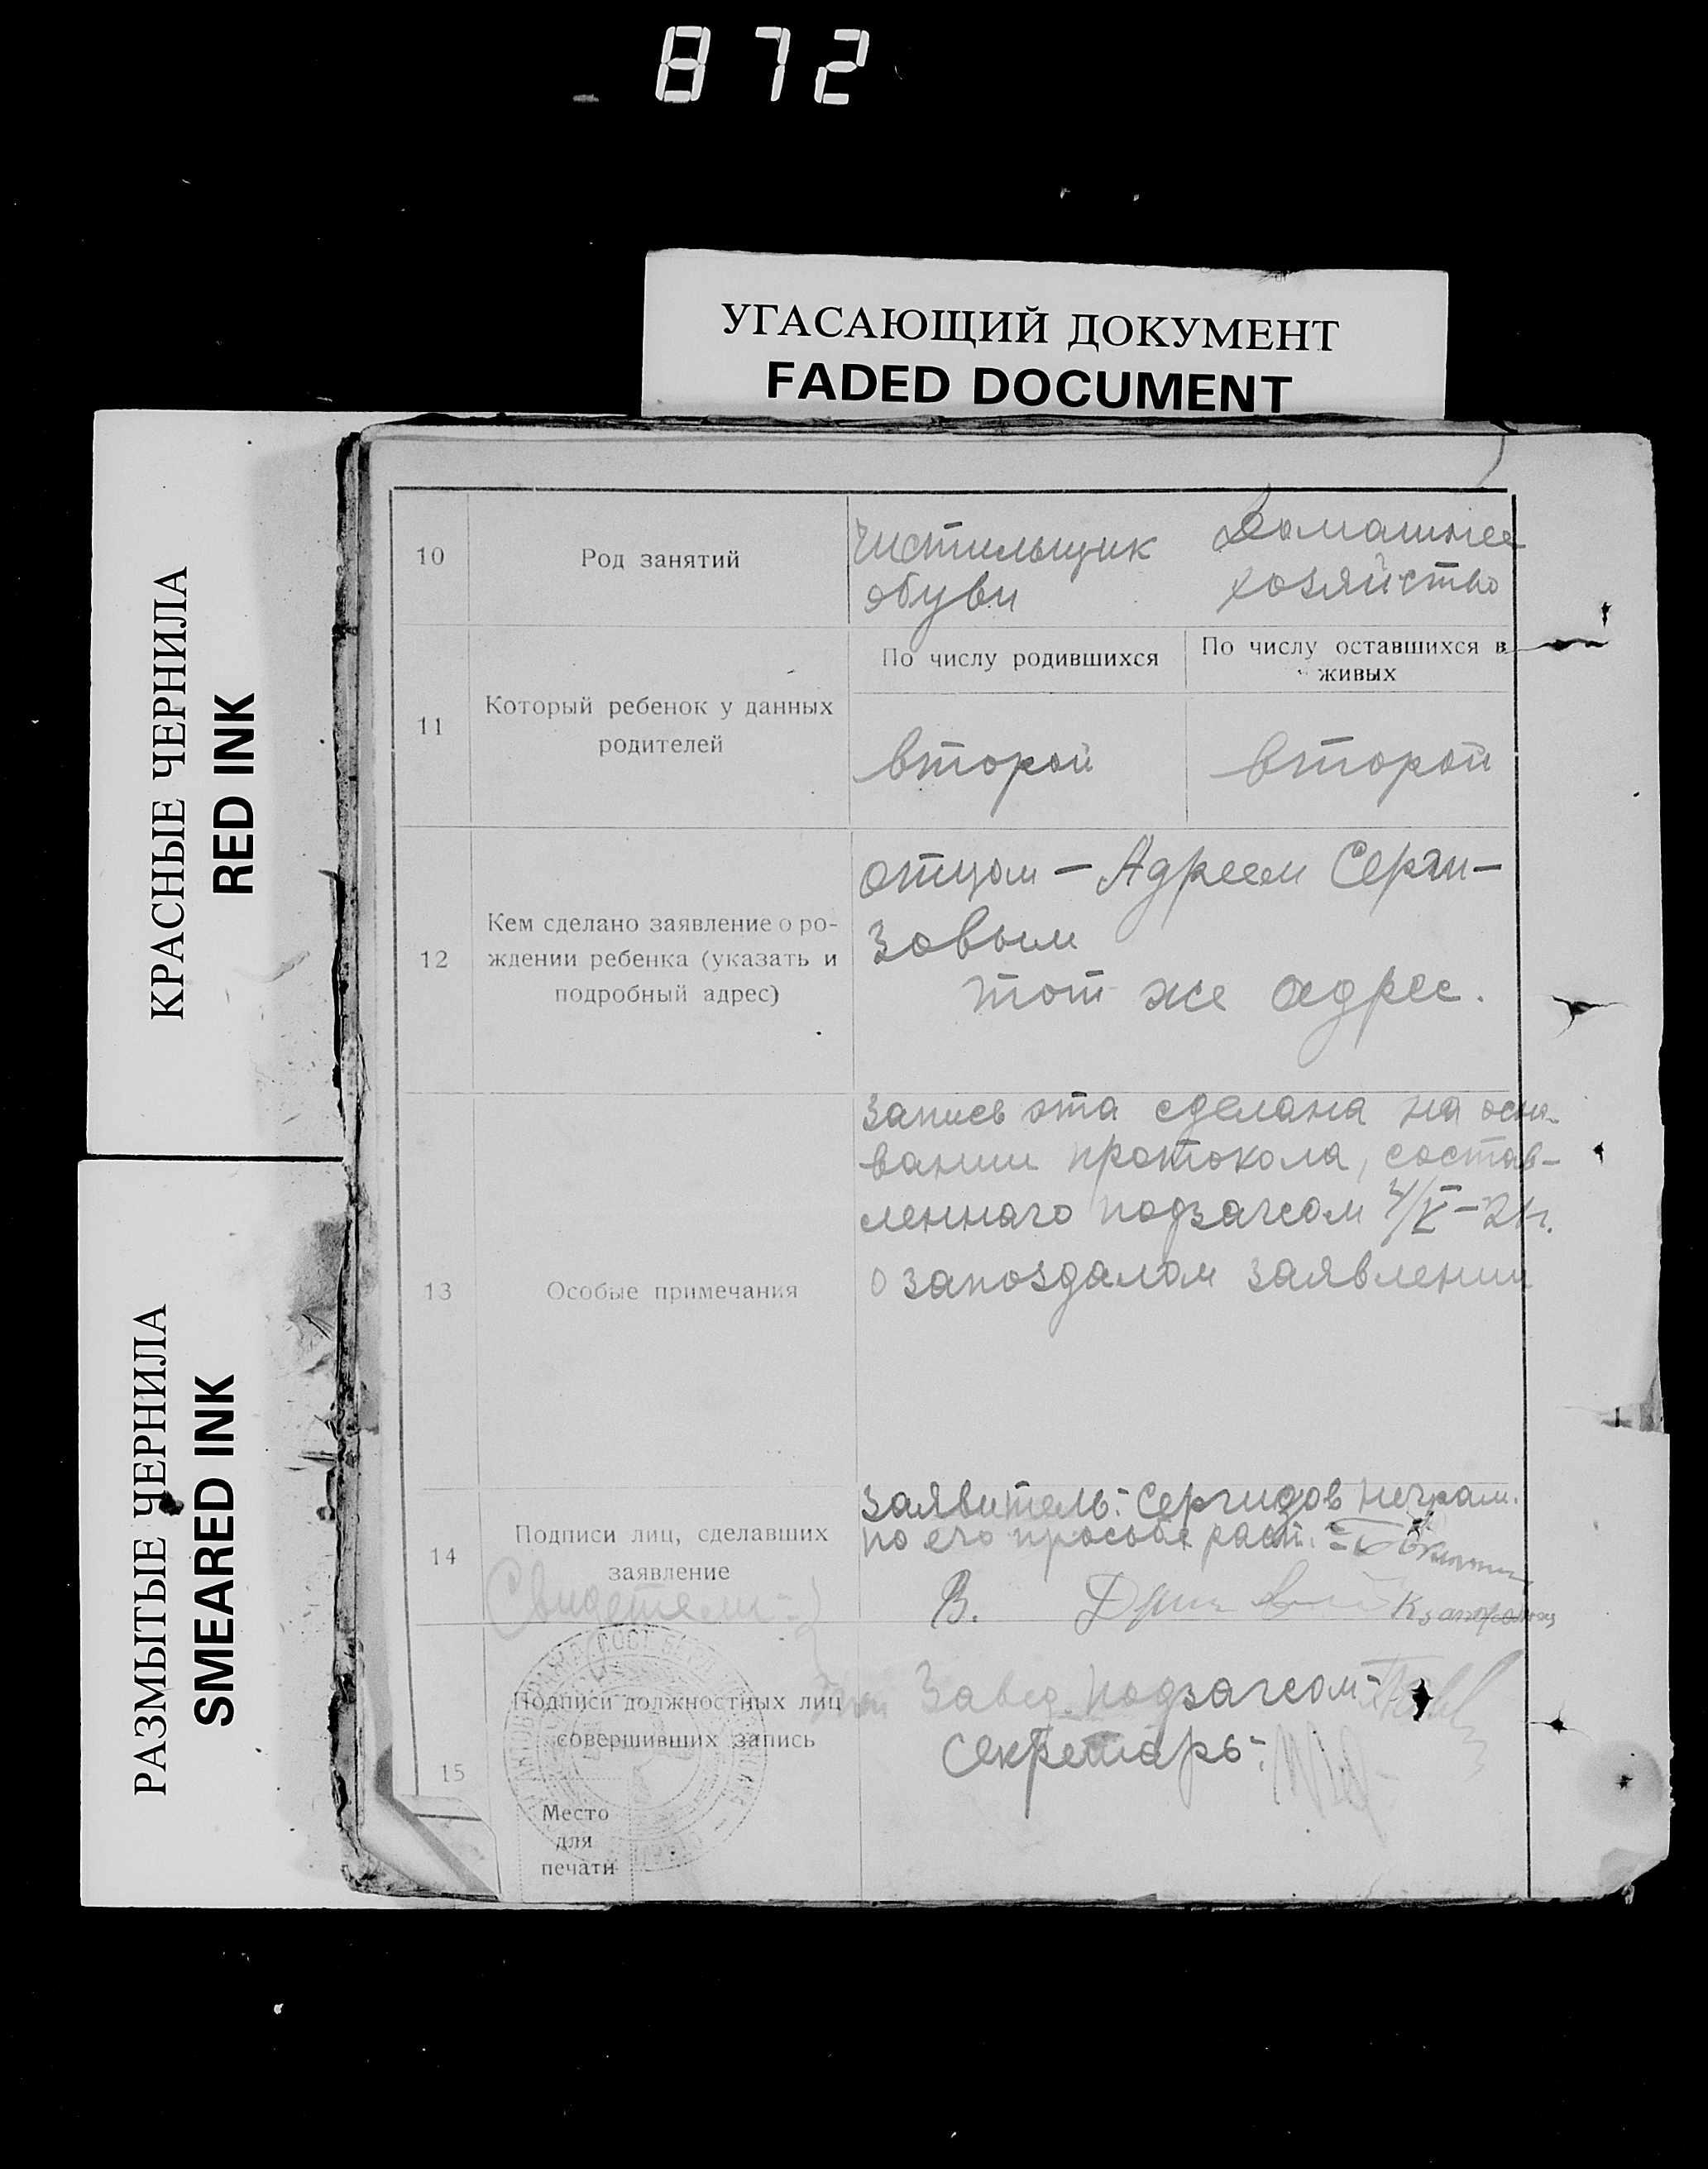 872
УГАСАЮЩИЙ ДОКУМЕНТ
FADED DOCUMENT
КРАСНЫЕ ЧЕРНИЛА
RED INK
РАЗМЫТЫЕ ЧЕРНИЛА
SMEARED INK
10
Род занятий
Чистильщик
обуви
Домашнее
хозяйство
11
Который ребенок у данных
родителей
По числу родившихся
По числу оставшихся в
живых
второй
второй
12
Кем сделано заявление о ро-
ждении ребенка (указать и
подробный адрес)
отцом – Адреем Серги-
зовым
тот же адрес.
13
Особые примечания
Запись эта сделана на осно-
вании протокола, состав-
леннаго подзагсом
о запоздалом заявлении
14
Подписи лиц, сделавших
заявление
Свидетели
Заявитель: Сергизов неграм.
по его просьбе расп.
В.
15
Подписи должностных лиц
совершивших запись
Место
для
печати
Завед. подзагсом-
Секретарь-